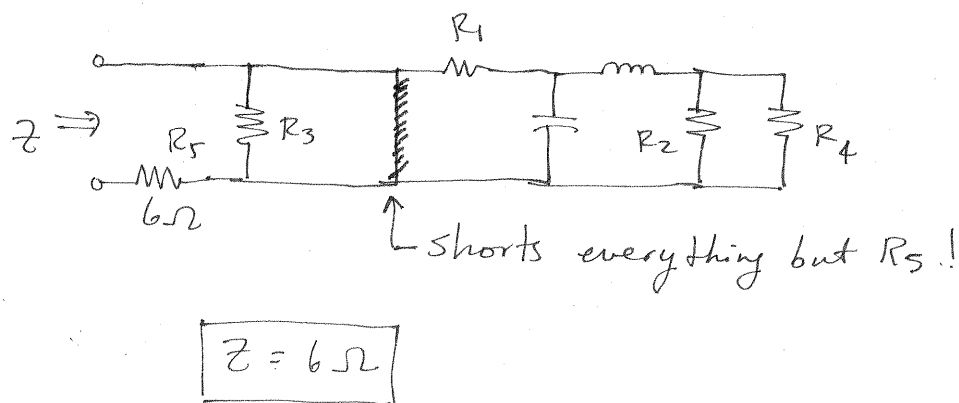 R1
Z ⇒
R5
R3
R2
R4
6Ω
shorts everything but R5!
Z = 6Ω